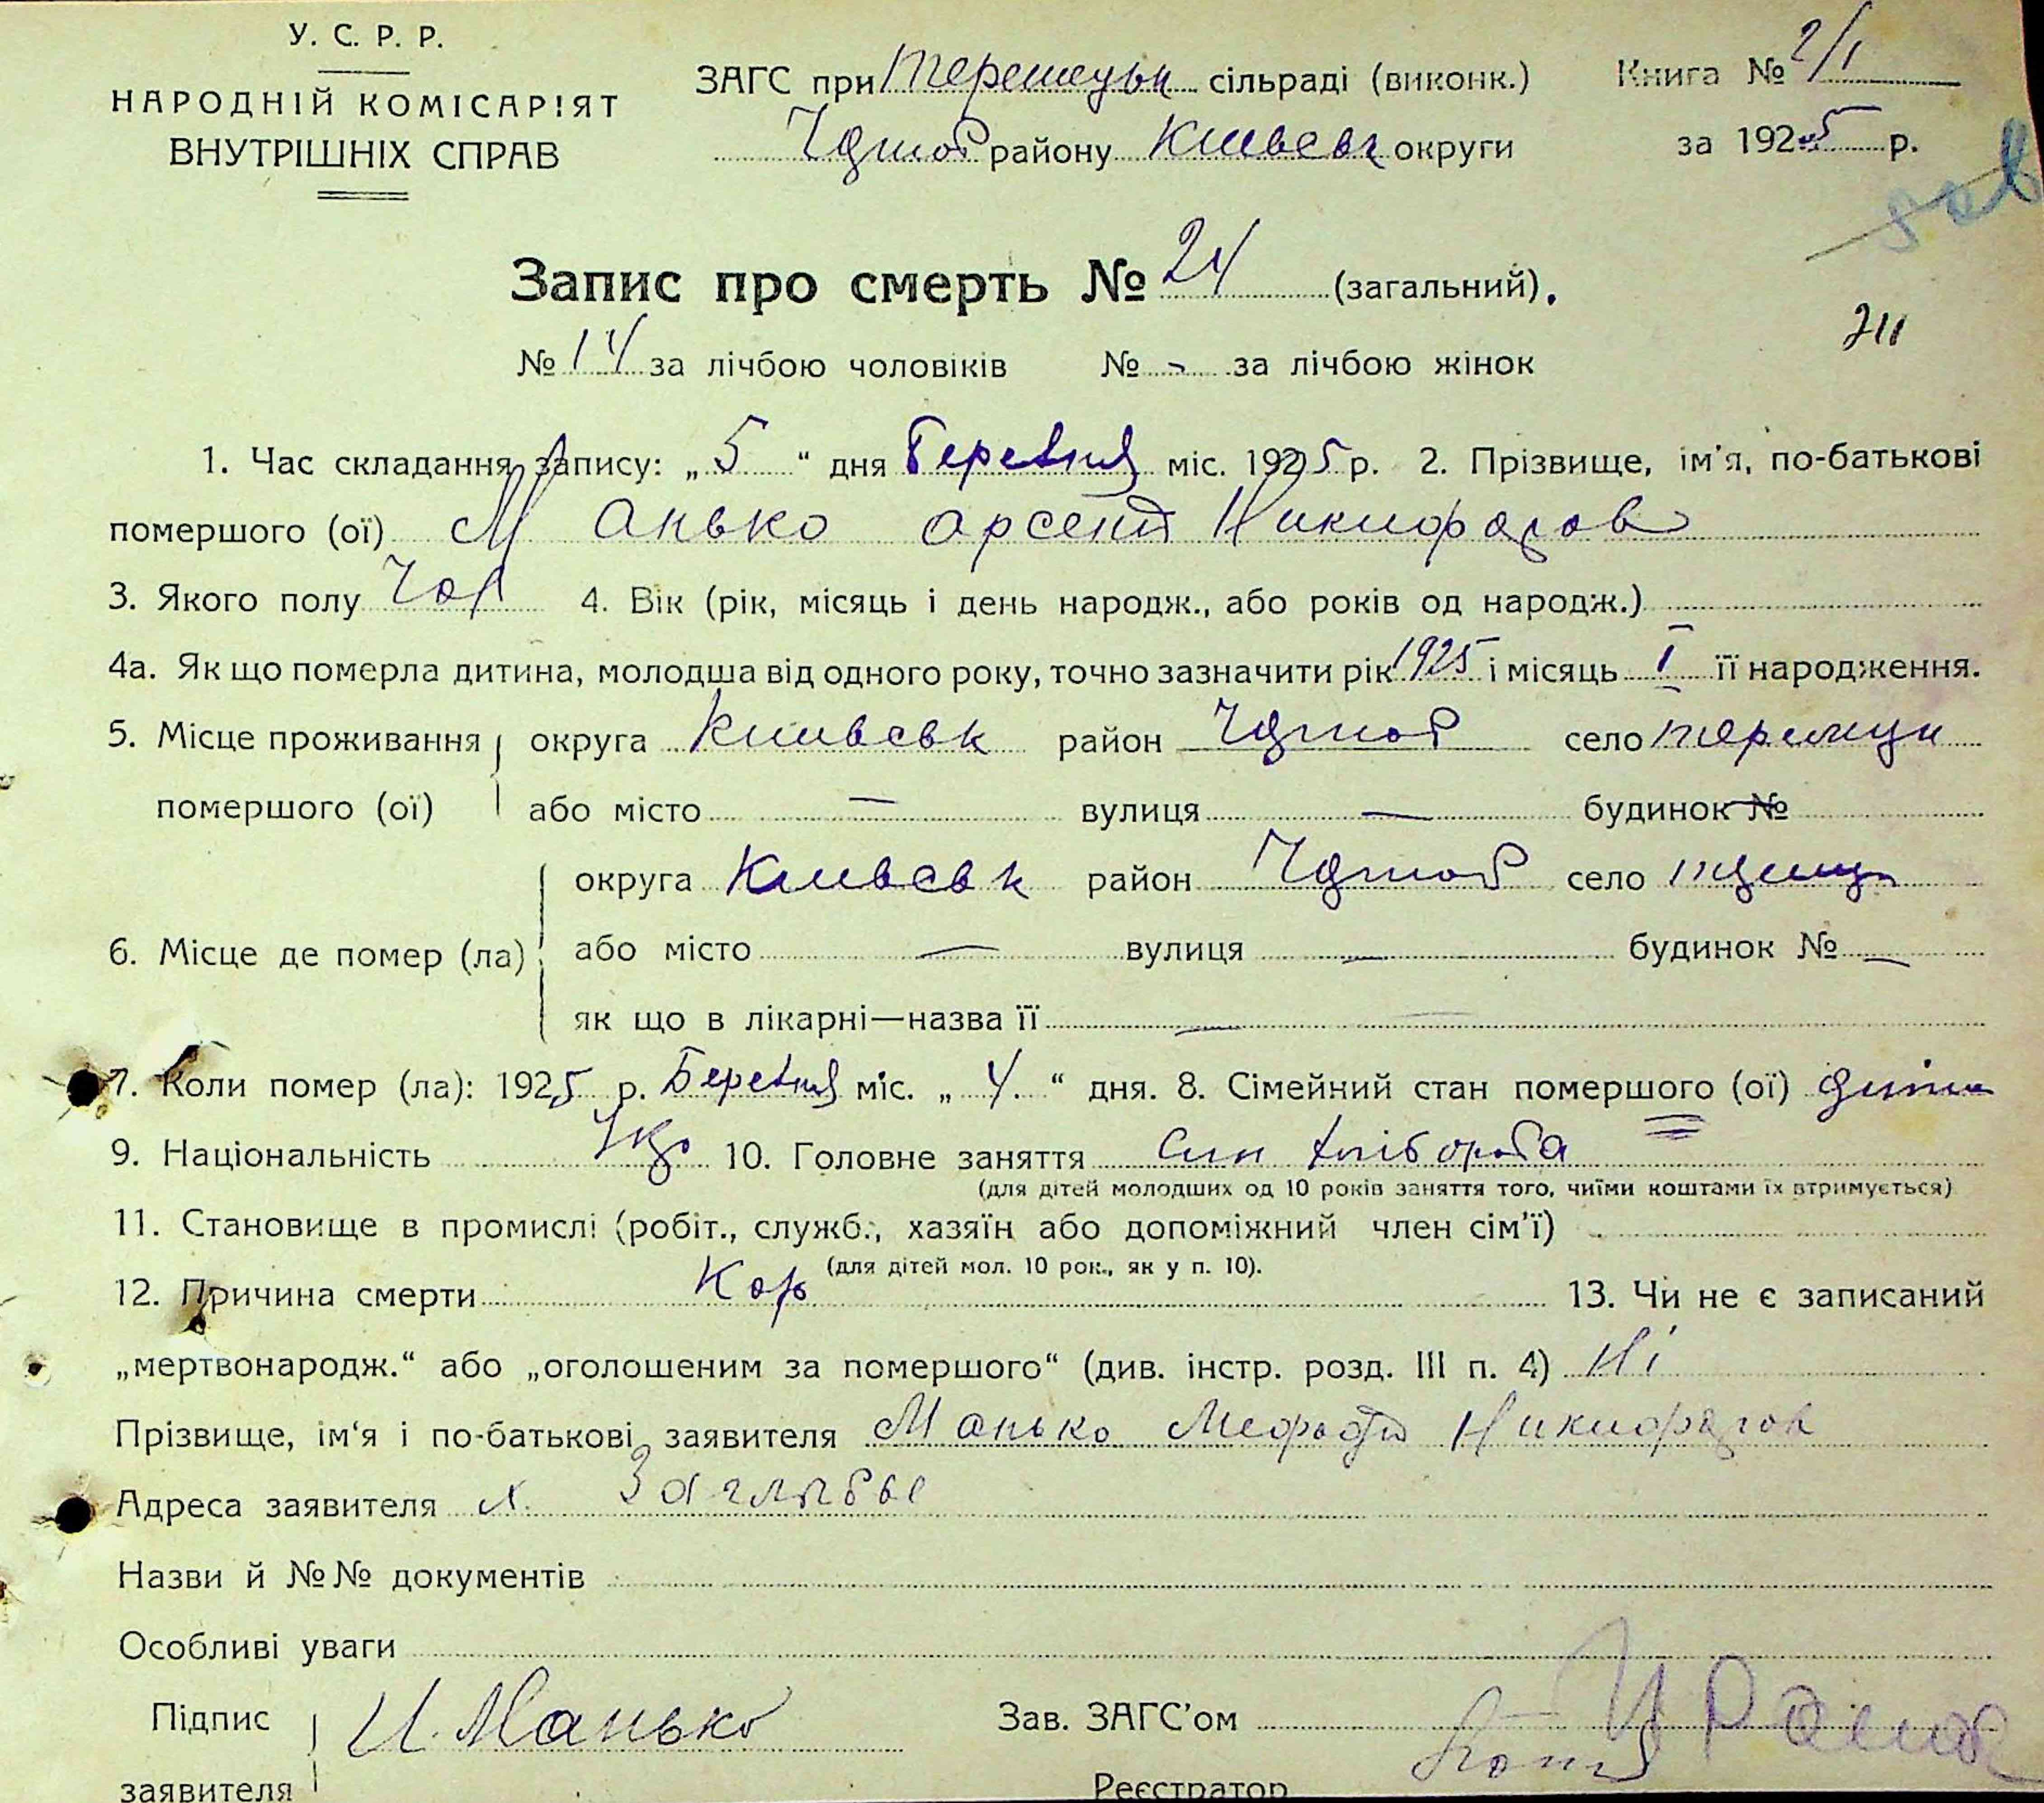 У. С. Р. Р.
НАРОДНІЙ КОМІСАРІЯТ
ВНУТРІШНІХ СПРАВ
ЗАГС при сільраді (виконк.)
району Київськ округи
Книга № 2/1
за 1925 р.
Запис про смерть № 24 (загальний).
№ 14 за лічбою чоловіків № - за лічбою жінок
1. Час складання запису: „ 5 “ дня Березня міс. 1925 р. 2. Прізвище, ім'я, по-батькові
помершого (ої) Манько Арсент Никифоров
3. Якого полу Чол 4. Вік (рік, місяць і день народж., або років од народж.)
4а. Як що померла дитина, молодша від одного року, точно зазначити рік 1925 і місяць I її народження.
5. Місце проживання округа Київськ район село
помершого (ої) або місто — вулиця — будинок №
округа Київськ район село
6. Місце де помер (ла) або місто — вулиця — будинок № —
як що в лікарні—назва її —
7. Коли помер (ла): 1925 р. Березня міс. „ 4. “ дня. 8. Сімейний стан помершого (ої)
9. Національність Укр 10. Головне заняття Син хлібороба
(для дітей молодших од 10 років заняття того, чиїми коштами їх втримується)
11. Становище в промислі (робіт., служб., хазяїн або допоміжний член сім'ї)
(для дітей мол. 10 рок., як у п. 10).
12. Причина смерти Кор 13. Чи не є записаний
„мертвонародж.“ або „оголошеним за помершого“ (див. інстр. розд. III п. 4) Ні
Прізвище, ім'я і по-батькові заявителя Манько Никифоров
Адреса заявителя х.
Назви й №№ документів
Особливі уваги
Підпис
заявителя И. Манько
Зав. ЗАГС'ом
Реєстратор